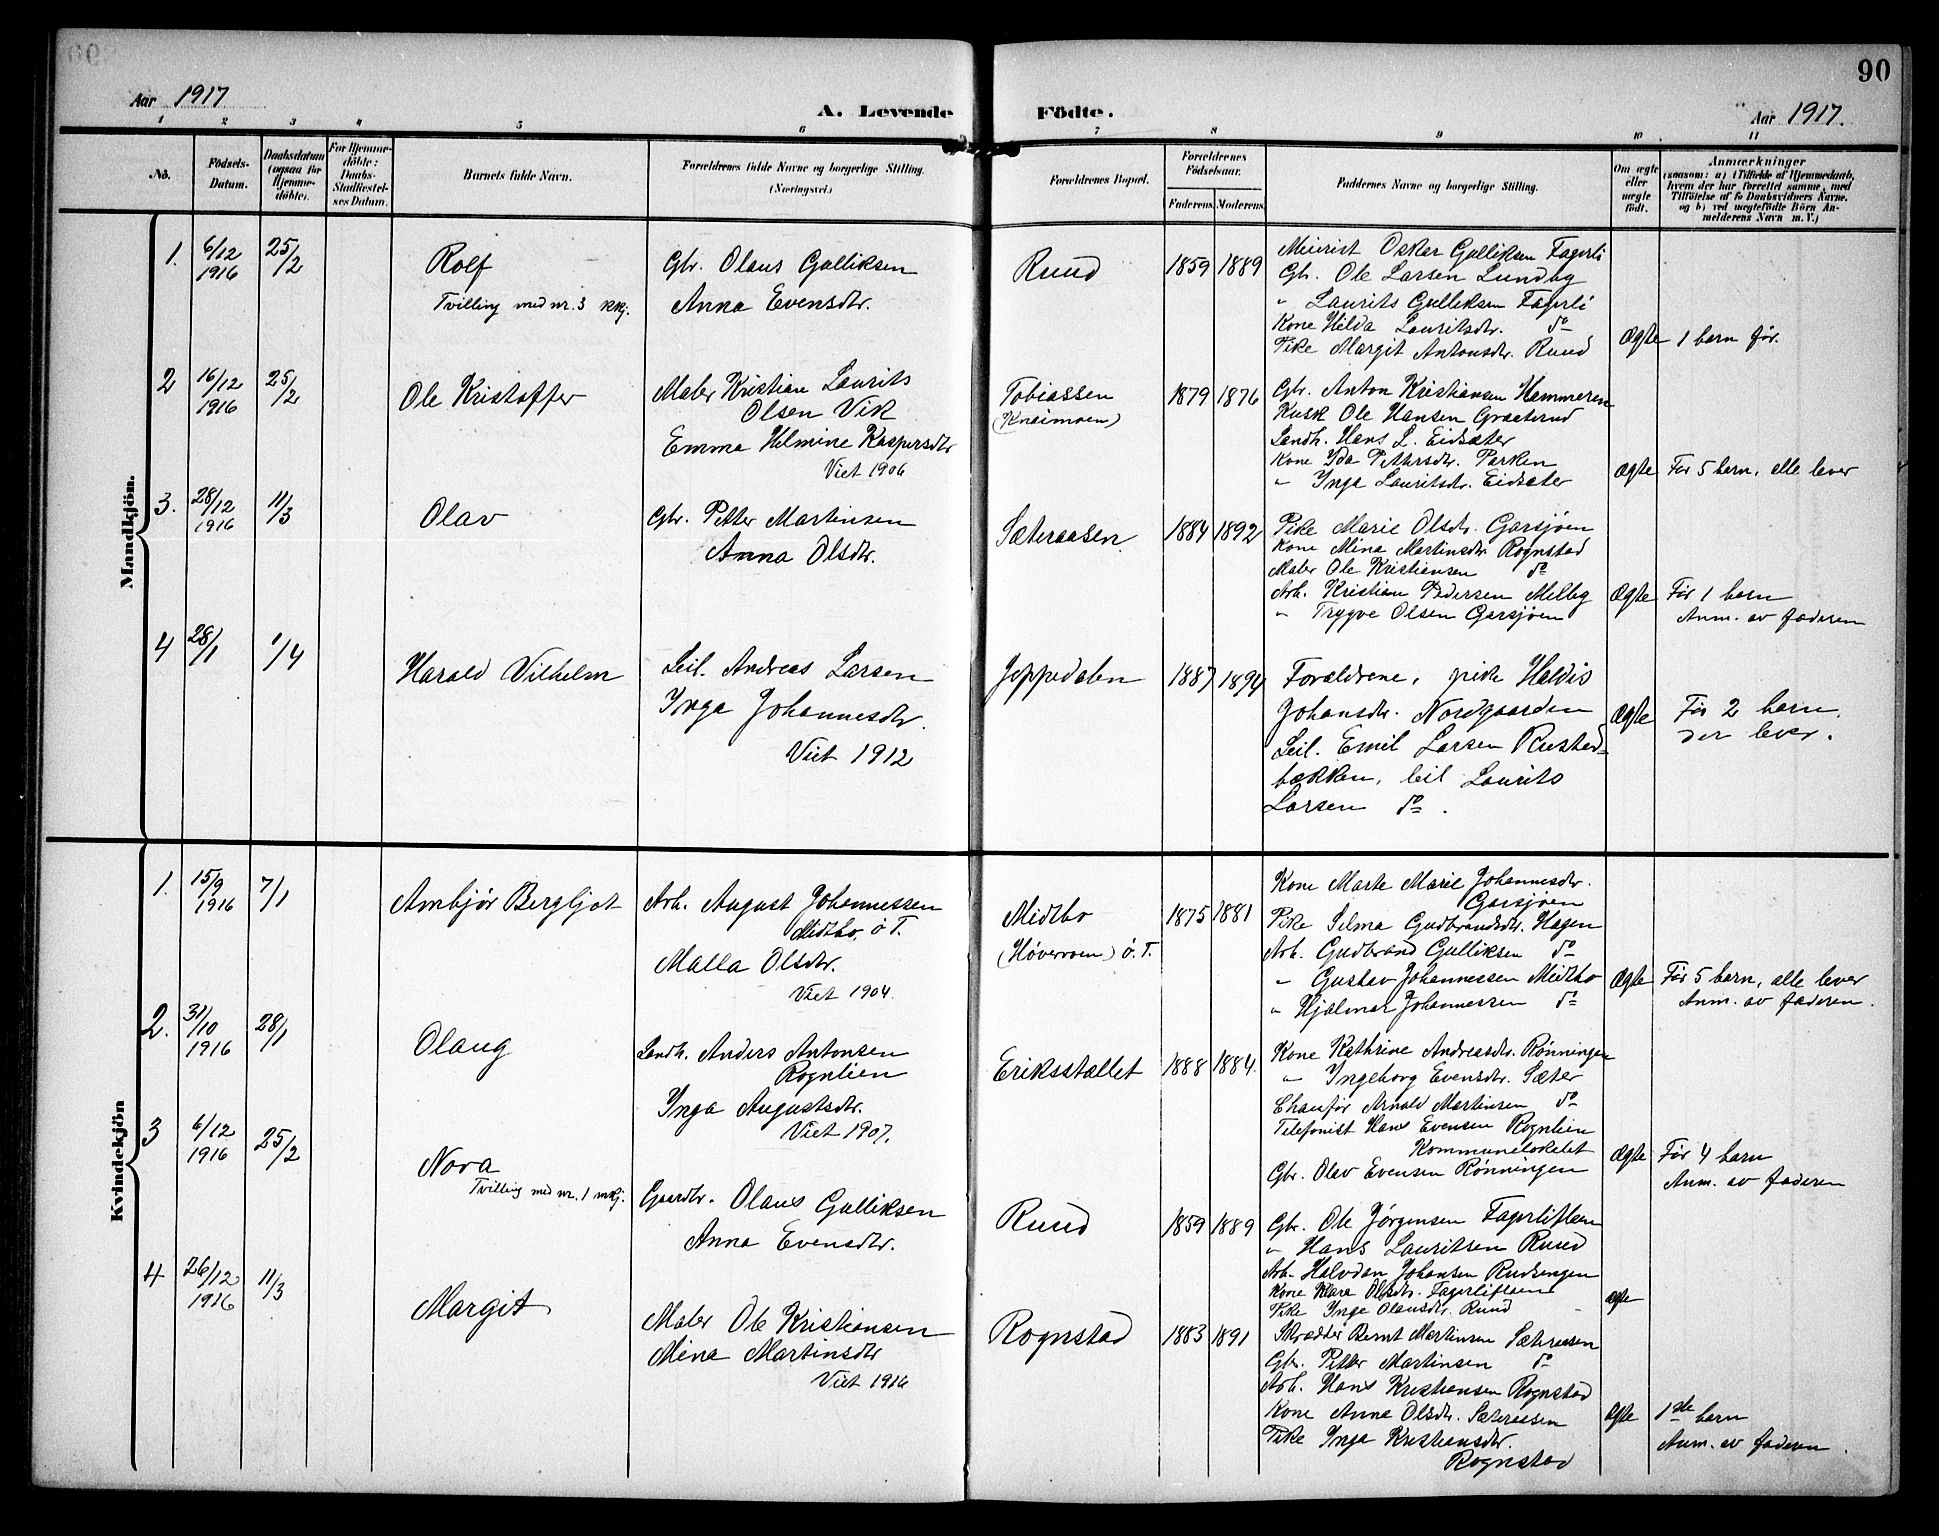 90
Aar 1917
A. Levende Födte.
Aar 1917.
1 2 3 4 5 6 7 8 9 10 11
No.
Födsels-
Datum.
Daabsdatum
(ogsaa for
Hjemme-
döbte).
For Hjemme-
döbte:
Daabs-
Stadfæstel-
ses Datum.
Barnets fulde Navn.
Forældrenes fulde Navne og borgerlige Stilling.
(Næringsvei.)
Forældrenes Bopæl.
Forældrenes
Födselsaar.
Faderens. Moderens.
Faddernes Navne og borgerlige Stilling.
Om ægte
eller
uægte
født.
Anmærkninger
(saasom: a) i Tilfælde af Hjemmedaab,
hvem der har forrettet samme, med
Tilföielse af to Daabsvidners Navne.
og b) ved uægtefödte Börn An-
melderens Navn m. V.)
Mandkjön.
1.
6/12
1916
25/2
Rolf
Tvilling med nr. 3 kkj.
Gbr. Olaus Gulliksen
Anna Evensdtr.
Ruud
1859
1889
Meierist Oskar Gulliksen Fagerli
Gbr. Ole Larsen Lundby
" Laurits Gulliksen Fagerli
Kone Hilda Lauritsdtr. do
Pike Margit Antonsdtr. Ruud
Ægte
1 barn før.
2
16/12
1916
25/2
Ole Kristoffer
Maler Kristian Laurits
Olsen Vik
Emma Helmine Kaspersdtr
Viet 1906
Tobiassen
(Knaimoen)
1879
1876
Gbr. Anton Kristiansen Hammeren
Kusk Ole Hansen Græterud
Landh. Hans L. Eidsæter
Kone Ida Pettersdtr. Parken
" Inga Lauritsdtr. Eidsæter
Ægte
Før 5 barn, alle lever
3.
28/12
1916
11/3
Olav
Gbr. Petter Martinsen
Anna Olsdtr.
Sæteraasen
1884
1892
Pike Marie Olsdtr. Garsjøen
Kone Mina Martinsdtr Rognstad
Maler Ole Kristiansen do
Arb. Kristian Pedersen Melby
" Trygve Olsen Garsjøen
Ægte
Før 1 barn
Anm. av faderen
4
28/1
1/4
Harald Vilhelm
Leil. Andreas Larsen
Inga Johannesdtr.
Viet 1912
Jøppedalen
1887
1894
Forældrene, pike Haldis
Johansdtr. Nordgaarden
Leil. Emil Larsen Rustad-
bækken, leil Laurits
Larsen do.
Ægte
Før 2 barn,
der lever.
Kvindekjön
1.
15/9
1916
7/1
Ambjør Bergljot
Arb. August Johannessen
Midtbo, Ö T.
Malla Olsdtr.
Viet 1904.
Midtbo
(Høvermoen) Ö. T.
1875
1881
Kone Marte Marie Johannesdtr.
Garsjøen
Pike Selma Gudbrandsdtr. Hagen
Arb. Gudbrand Gulliksen do
" Gustav Johannessen Midtbo
" Hjalmar Johannessen do
Ægte
Før 5 barn, alle lever
Anm. av faderen.
2.
31/10
1916
28/1
Olaug
Landh. Anders Antonsen
Rognlien
Inga Augustsdtr.
Viet 1907.
Eriksstallet
1888
1884.
Kone Kathrine Andreasdtr. Rønningen
" Ingeborg Evensdtr. Sæter
Chaufør Arnold Martinsen do
Telefonist Hans Evensen Rognlien
Kommunelokalet
Gbr. Olav Evensen Rønningen
Ægte
Før 4 barn
Anm. av faderen
3
6/12
1916
25/2
Nora
Tvilling med nr. 1 mkj.
Gaardbr. Olaus Gulliksen
Anna Evensdtr.
Ruud
1859
1889
Gbr. Ole Jørgensen Fagerliflaen
" Hans Lauritsen Ruud
Arb. Halvdan Johansen Rudsengen
Kone Klara Olsdtr. Fagerliflaen
Pike Inga Olausdtr. Ruud
Ægte
4
26/12
1916
11/3
Margit
Maler Ole Kristiansen
Mina Martinsdtr
Viet 1916
Rognstad
1883
1891
Skrædder Bernt Martinsen Sæteraasen
Gbr. Petter Martinsen do
Arb. Hans Kristiansen Rognstad
Kone Anna Olsdtr. Sæteraasen
Pike Inga Kristiansdtr.
Rognstad
Ægte
1ste barn
Anm. av faderen.